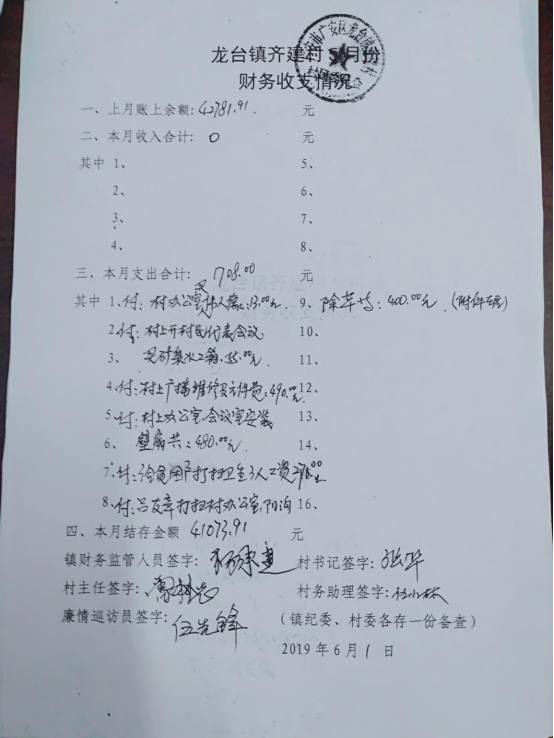 龙台镇齐建村5月份
财务收支情况
一、上月账上余额:42781.91. 元
二、本月收入合计: 0 元
其中 1、 5、
2、 6、
3、 7、
4、 8、
三、本月支出合计: 1708.00 元
其中 1、付:村办公室买 13.00元 9、除草 :400.00元.(附件在后)
2、付:村上开村民代表会议 10、
3、买矿泉水2箱:55.00元. 11、
4、付:村上广播维修及元件费:490.00元 12、
5、付:村上办公室会议室安装 13、
6、壁扇共:480.00元. 14、
7、付:给贫困户打扫卫生3人工资
8、付:吕友章打扫村办公室、 16、
四、本月结存金额 41073.91 元
镇财务监管人员签字: 村书记签字:张华
村主任签字: 村务助理签字:
廉情巡访员签字:伍先锋 (镇纪委、村委各存一份备查)
2019年6月1日